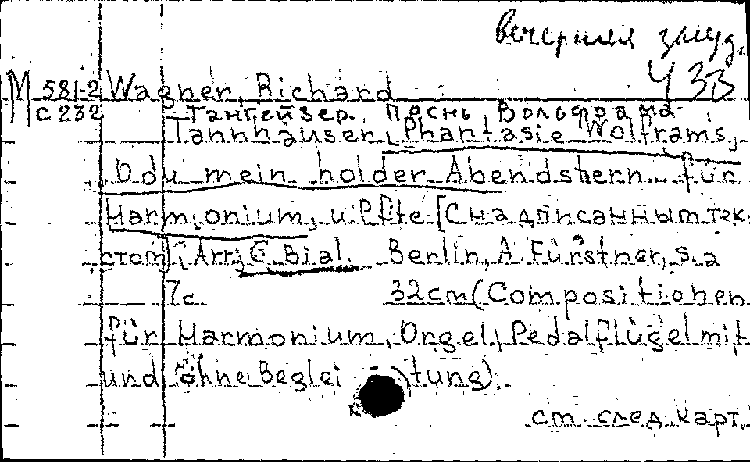 вечерняя звезд.
Ч 33
М 581-2 Wagner, Richard
с 232 Тангейзер, Песнь Вольфрама
Tannhäuser, Phantasie Wolframs,
O du mein holder Abendstern... für
Harmonium, u. Pfte [С надписанным тек-
стом] (Arr. G. Bial. Berlin, A. Fürstner, s.a
7c. 32cm (Compositionen
für Harmonium, Orgel, Pedalflügel mit
und ohne Beglei tung).
см. след. карт.